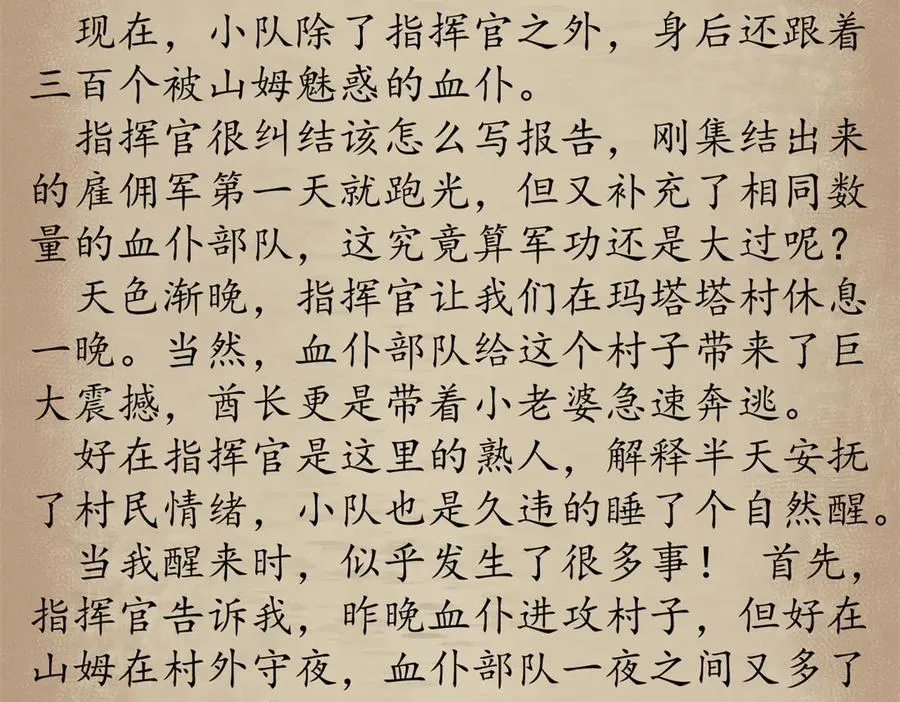 现在，小队除了指挥官之外，身后还跟着
三百个被山姆魅惑的血仆。
指挥官很纠结该怎么写报告，刚集结出来
的雇佣军第一天就跑光，但又补充了相同数
量的血仆部队，这究竟算军功还是大过呢？
天色渐晚，指挥官让我们在玛塔塔村休息
一晚。当然，血仆部队给这个村子带来了巨
大震撼，酋长更是带着小老婆急速奔逃。
好在指挥官是这里的熟人，解释半天安抚
了村民情绪，小队也是久违的睡了个自然醒。
当我醒来时，似乎发生了很多事！ 首先，
指挥官告诉我，昨晚血仆进攻村子，但好在
山姆在村外守夜，血仆部队一夜之间又多了